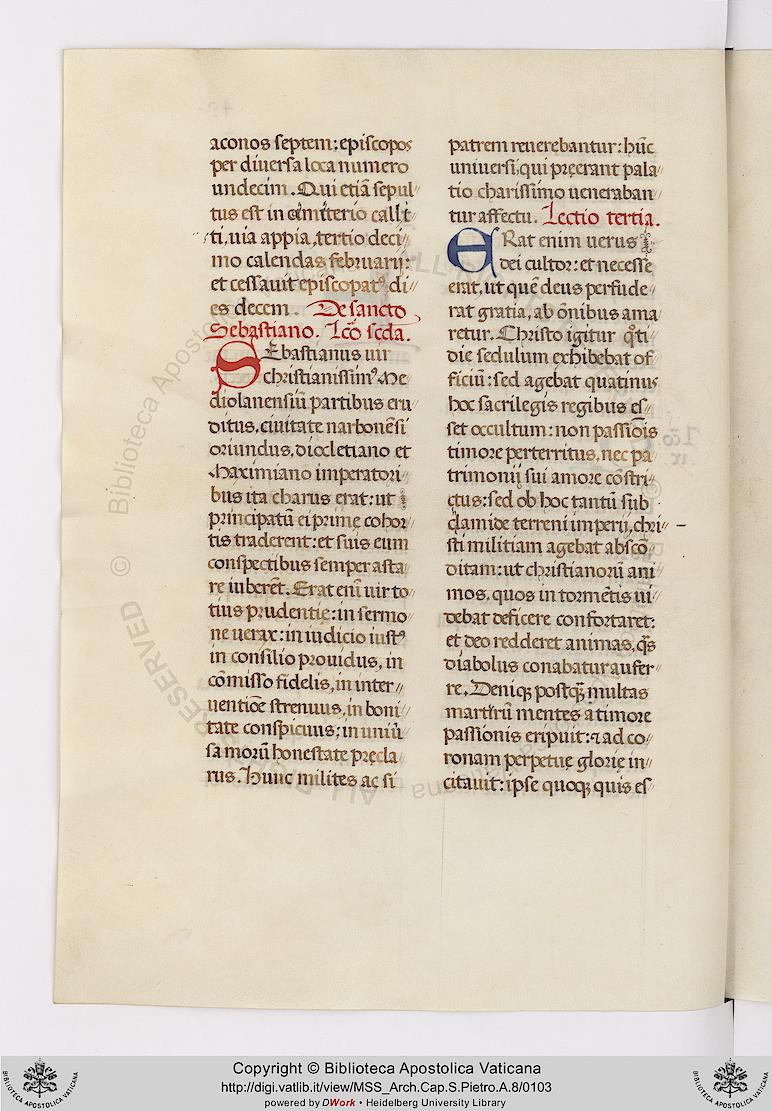 aconos septem: episcopos
per diuersa loca numero
undecim. Qui etiā sepul
tus est in cimiterio callıt
ti, uia appia, tertio deci
mo calendas februarij:
et cessauit episcopatꝰ di
es decem. De sancto
Sebastiano. Lcō scda.
SEbastianus uir
christianissimꝰ Me
diolanensiū partibus eru
ditus, ciuitate narbonēsi
oriundus, diocletiano et
Maximiano imperatori
bus ita charus erat: ut
principatū ei prime cohor
tis traderent: et suis eum
conspectibus semper asta
re iuberēt. Erat eni uir to
tius prudentie: in sermo
ne uerax: in iudicio iustꝰ
in consilio prouidus, in
cōmisso fidelis, in inter
uentiōe strenuus, in boni
tate conspicuus; in uniū
sa morū honestate precla
rus. Hunc milites ac si
patrem reuerebantur: hūc
uniuersi, qui preerant pala
tio charissimo ueneraban
tur affectu. Lectio tertia.
ERat enim uerus
dei cultor: et necesse
erat, ut quē deus perfude
rat gratia, ab ōnibus ama
retur. Christo igitur q̊ti
die sedulum exhibebat of
ficiū: sed agebat quatinus
hoc sacrilegis regibus es
set occultum: non passiōis
timore perterritus, nec pa
trimonij sui amore cōstri
ctus: sed ob hoc tantū sub
clamide terreni imperij, chri
sti militiam agebat abscō
ditam: ut christianorū ani
mos, quos in tormētis ui
debat deficere confortaret:
et deo redderet animas, q̄s
diabolus conabatur aufer
re. Deniqꝫ postqꝫ multas
martirū mentes a timore
passionis eripuit: ⁊ ad co
ronam perpetue glorie in
citauit: ipse quoqꝫ quis es
© Biblioteca Apostolica Vaticana
ALL RIGHTS RESERVED
Copyright © Biblioteca Apostolica Vaticana
http://digi.vatlib.it/view/MSS_Arch.Cap.S.Pietro.A.8/0103
powered by DWork • Heidelberg University Library
BIBLIOTECA APOSTOLICA VATICANA
BIBLIOTECA APOSTOLICA VATICANA